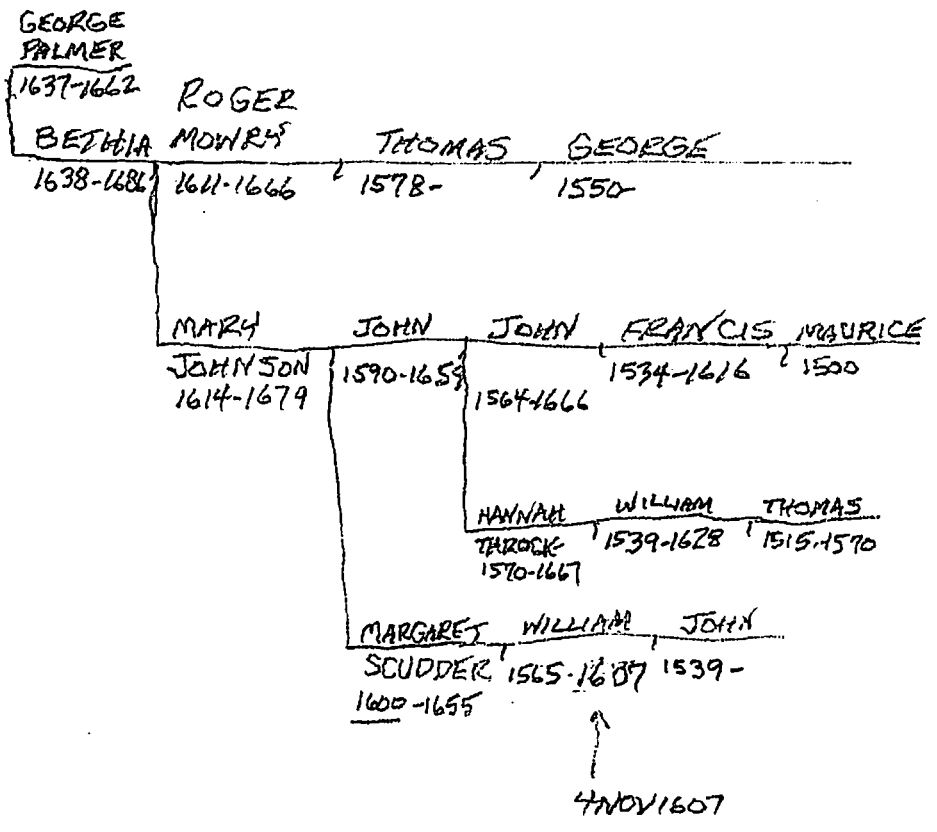 GEORGE
PALMER
1637-1662
ROGER
BETHIA MOWRY THOMAS GEORGE
1638-1686 1611-1666 1578- 1550-
MARY JOHN JOHN FRANCIS MAURICE
JOHNSON 1590-1659 1534-1616 1500
1614-1679 1564-1666
HANNAH WILLIAM THOMAS
THROCK- 1539-1628 1515-1570
1570-1667
MARGARET WILLIAM JOHN
SCUDDER 1565-1607 1539-
1600-1655
4 NOV 1607